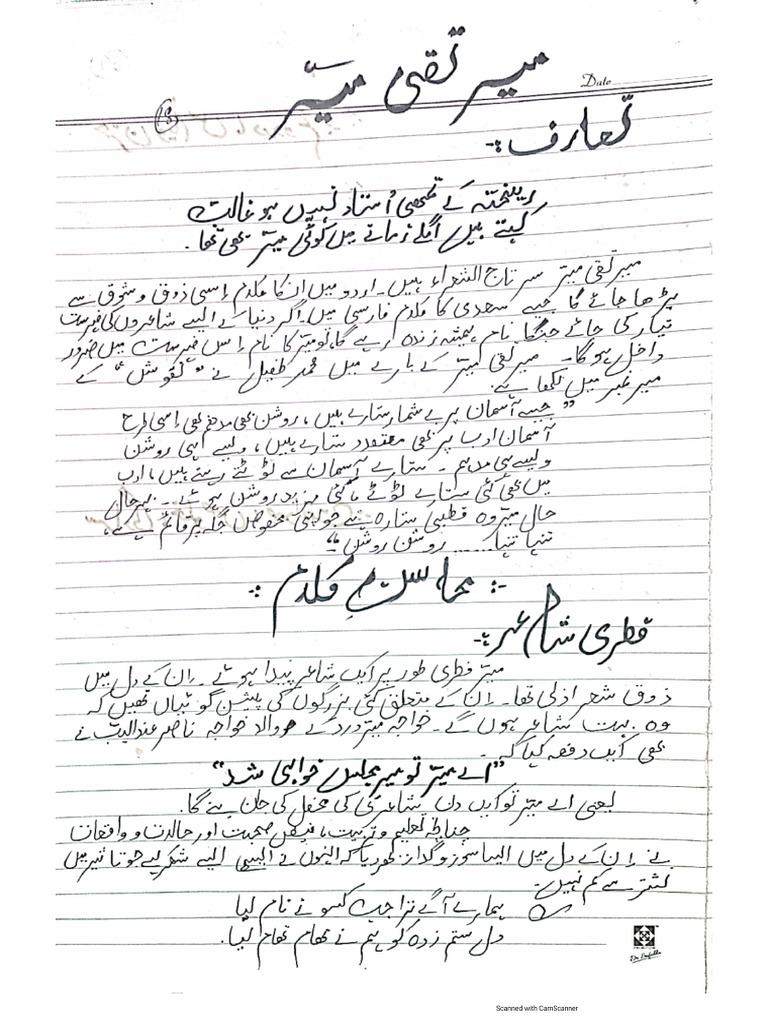 میر تقی میرؔ
Date
تعارف :-
ریختہ کے تمھی اُستاد نہیں ہو غالبؔ
کہتے ہیں اگلے زمانے میں کوئی میرؔ بھی تھا۔
میر تقی میرؔ سر تاج الشعراء ہیں۔ اردو میں ان کا کلام اسی ذوق و شوق سے
پڑھا جائے گا جیسے سعدی کا کلام فارسی میں۔ اگر دنیا کے ایسے شاعروں کی فہرست
تیار کی جائے جنکا نام ہمیشہ زندہ رہے گا، تو میرؔ کا نام اس فہرست میں ضرور
داخل ہوگا۔ میر تقی میرؔ کے بارے میں محمد طفیل نے "نقوش" کے
میر نمبر میں لکھا ہے:
"جیسے آسمان پر بے شمار ستارے ہیں، روشن بھی مدھم بھی اسی طرح
آسمان ادب پر بھی متعدد ستارے ہیں، ویسے ہی روشن
ویسے ہی مدہم۔ ستارے آسمان سے ٹوٹتے رہتے ہیں، ادب
میں بھی کئی ستارے ٹوٹے یا کئی مزید روشن ہوئے۔ بہرحال
حال میرؔ وہ قطبی ستارہ ہے جو اپنی مخصوص جگہ پر قائم ہے،
تنہا تنہا ...... روشن روشن"
:- محاسنِ کلام :-
فطری شاعر :-
میرؔ فطری طور پر ایک شاعر پیدا ہوئے۔ ان کے دل میں
ذوق شعر ازلی تھا۔ ان کے متعلق کئی بزرگوں کی پیشن گوئیاں تھیں کہ
وہ بہت شاعر ہوں گے۔ خواجہ میر درد کے والد خواجہ ناصر عندالیب نے
بھی ایک دفعہ کہا کہ
"اے میرؔ تو میر مجلس خواہی شد"
یعنی اے میرؔ تو ایک دن شاعری کی محفل کی جان بنے گا۔
چنانچہ تعلیم و تربیت، فیض صحبت اور حالات و واقعات
نے ان کے دل میں ایسا سوز و گداز بھر دیا کہ انہوں نے ایسے شعر کہے جو تاثیر میں
نشتر سے کم نہیں۔
ہمارے آگے ترا جب کسو نے نام لیا
دل ستم زدہ کو ہم نے تھام تھام لیا۔
Scanned with CamScanner